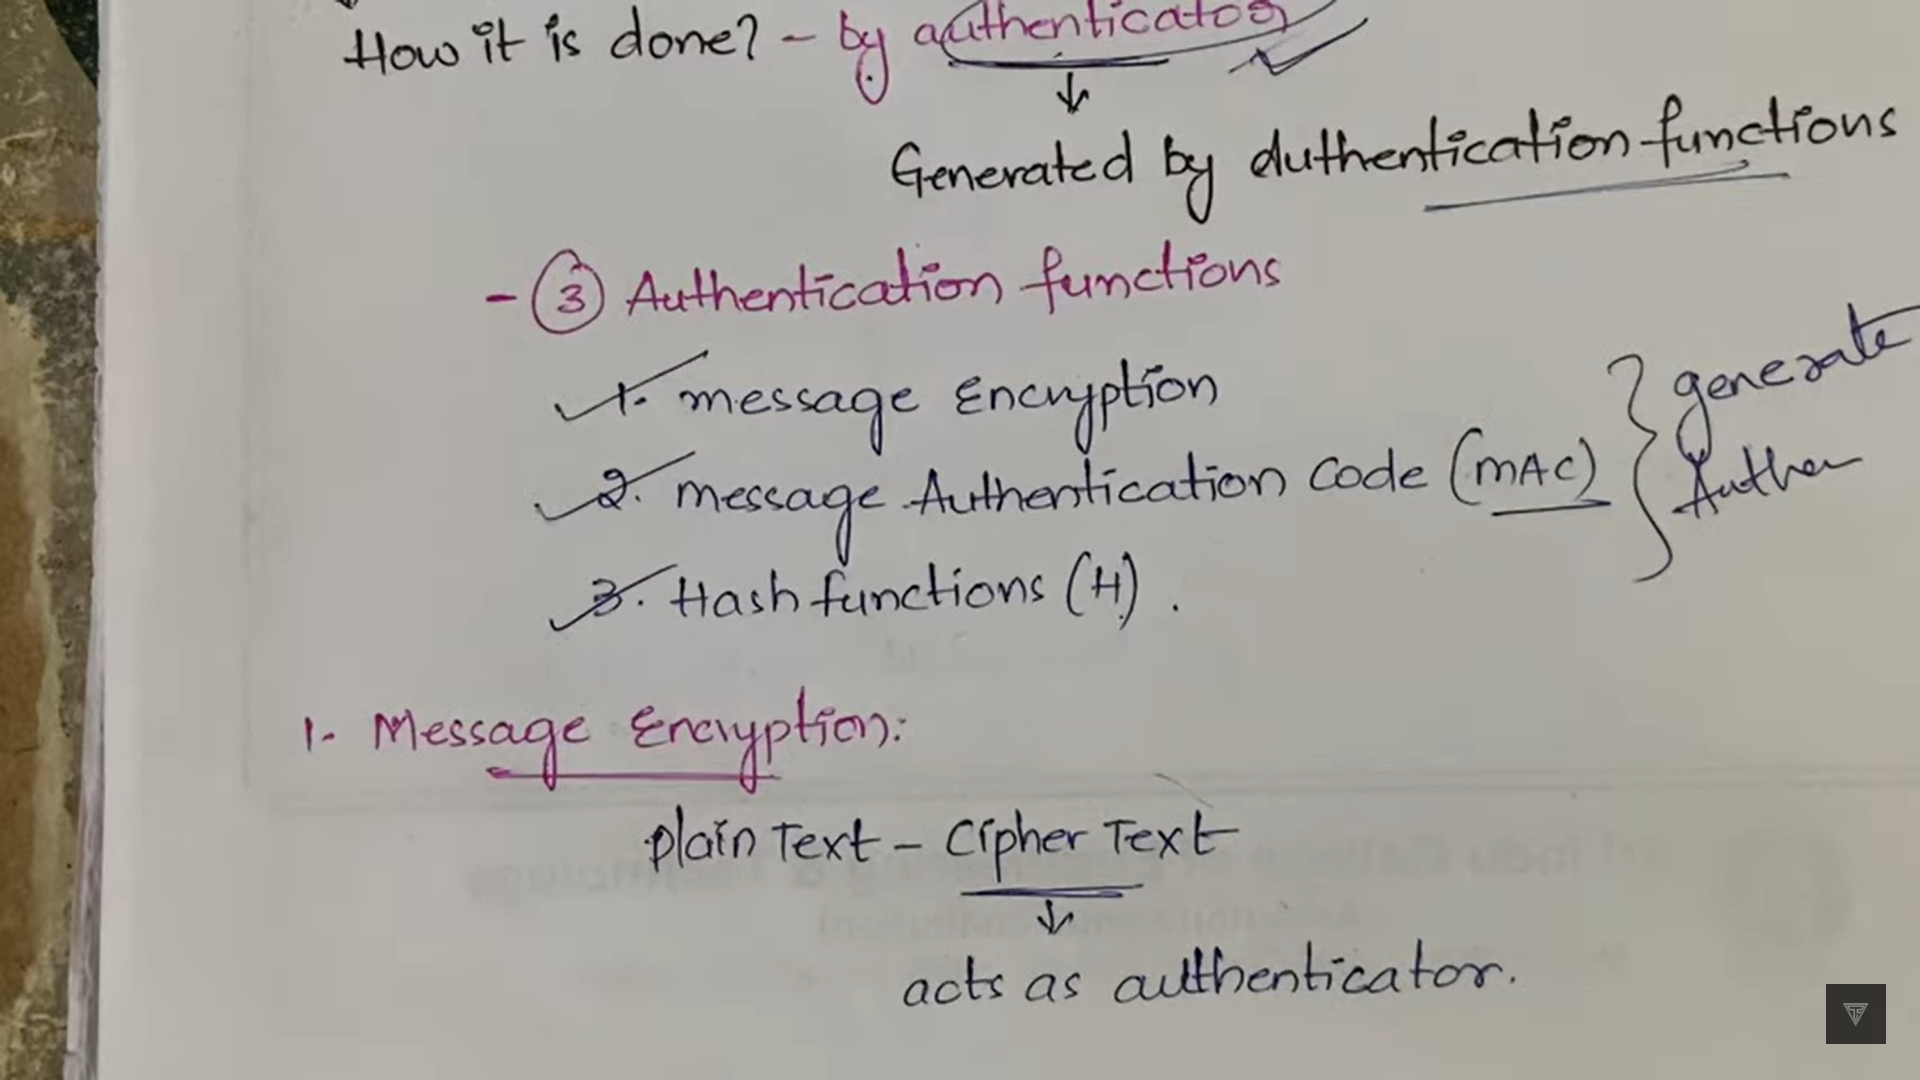 How it is done? - by authenticator
↓
Generated by authentication functions
- ③ Authentication functions
1. message Encryption
2. message Authentication Code (MAC)
3. Hash functions (H).
} generate
Authen
1. Message Encryption:
plain Text - Cipher Text
↓
acts as authenticator.